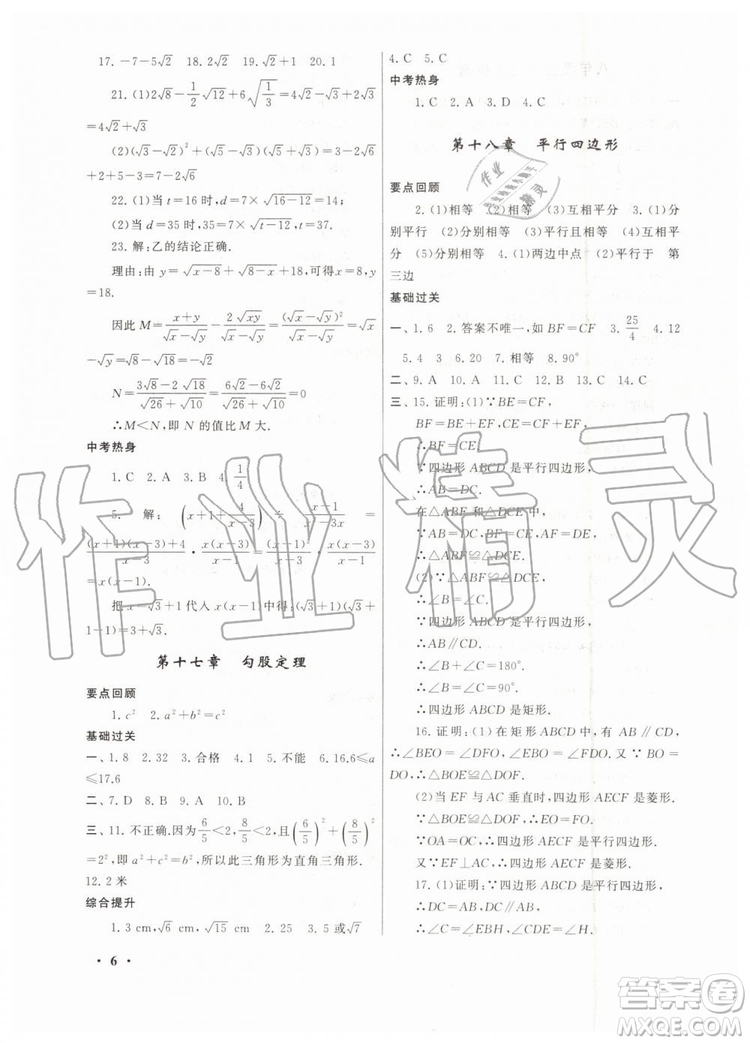 17. -7-5√2　18. √2　19. √2+1　20. 1
21. (1)2√8-1/2√12+6√(1/3)=4√2-√3+2√3=
4√2+√3
(2)(√3-√2)²+(√3+√2)²=3-2√6+2+3+
2√6+2=5+5=10.
22. (1)当 t=16时, d=7×√(16-12)=14;
(2)当 d=35 时, 35=7×√(t-12), t=37.
23. 解:乙的结论正确.
理由:由 y=√(x-8)+√(8-x)+18,可得 x=8, y
=18.
因此 M=(x+y)/(√x-√y)-2√(xy)/(√x-√y)=(√x-√y)²/(√x-√y)=√x
-√y=√8-√18=-√2
N=(3√8-2√18)/(√26+√10)=(6√2-6√2)/(√26+√10)=0
∴M<N,即 N 的值比 M 大.
中考热身
1. C　2. A　3. B　4. 1/4
5. 解:(x+1+4/(x-1))÷(x²+3)/(x-1)·(x²-x)
(x+1)(x-1)+4
把 x=√3+1代入 x(x-1)=(√3+1)(√3+
1-1)=3+√3.
第十七章　勾股定理
要点回顾
1. c²　2. a²+b²=c²
基础过关
一、1. 8　2. 32　3. 合格　4. 1　5. 不能　6. 16.6≤a
≤17.6
二、7. D　8. B　9. A　10. B
三、11. 不正确.因为6/5<2, 8/5<2,且(6/5)²+(8/5)²
=2²,即 a²+b²=c²,所以此三角形为直角三角形.
12. 2米
综合提升
1. 3 cm, √6 cm, √15 cm　2. 25　3. 5或√7
• 6 •
4. C　5. C
中考热身
1. C　2. A　3. D　4. C
第十八章　平行四边形
要点回顾
2. (1)相等　(2)相等　(3)互相平分　3. (1)分
别平行　(2)分别相等　(3)平行且相等　(4)互相平
分　(5)分别相等　4. (1)两边中点　(2)平行于　第
三边
基础过关
一、1. 6　2. 答案不唯一,如 BF=CF　3. 25/4　4. 12
5. 4　3　6. 20　7. 相等　8. 90°
二、9. A　10. A　11. D　12. B　13. C　14. C
三、15. 证明:(1)∵BE=CF,
BF=BE+EF, CE=CF+EF,
∴BF=CE.
∵四边形 ABCD 是平行四边形,
∴AB=DC.
在△ABF 和△DCE 中,
∵AB=DC, BF=CE, AF=DE,
∴△ABF≌△DCE.
(2)∵△ABF≌△DCE,
∴∠B=∠C.
∵四边形 ABCD 是平行四边形,
∴AB∥CD.
∴∠B+∠C=180°.
∴∠B=∠C=90°.
∴四边形 ABCD 是矩形.
16. 证明:(1)在矩形 ABCD 中,∵AB∥CD,
∴∠BEO=∠DFO, ∠OBE=∠ODF.又∵BO=
DO,∴△BOE≌△DOF.
(2)当 EF 与 AC 垂直时,四边形 AECF 是菱形.
∵△BOE≌△DOF,∴EO=FO.
∵OA=OC,∴四边形 AECF 是平行四边形.
又∵EF⊥AC,∴四边形 AECF 是菱形.
17. (1)证明:∵四边形 ABCD 是平行四边形,
∴DC=AB, DC∥AB,
∴∠C=∠EBH, ∠CDH=∠E.
作业精灵
答案圈
MXQE.COM